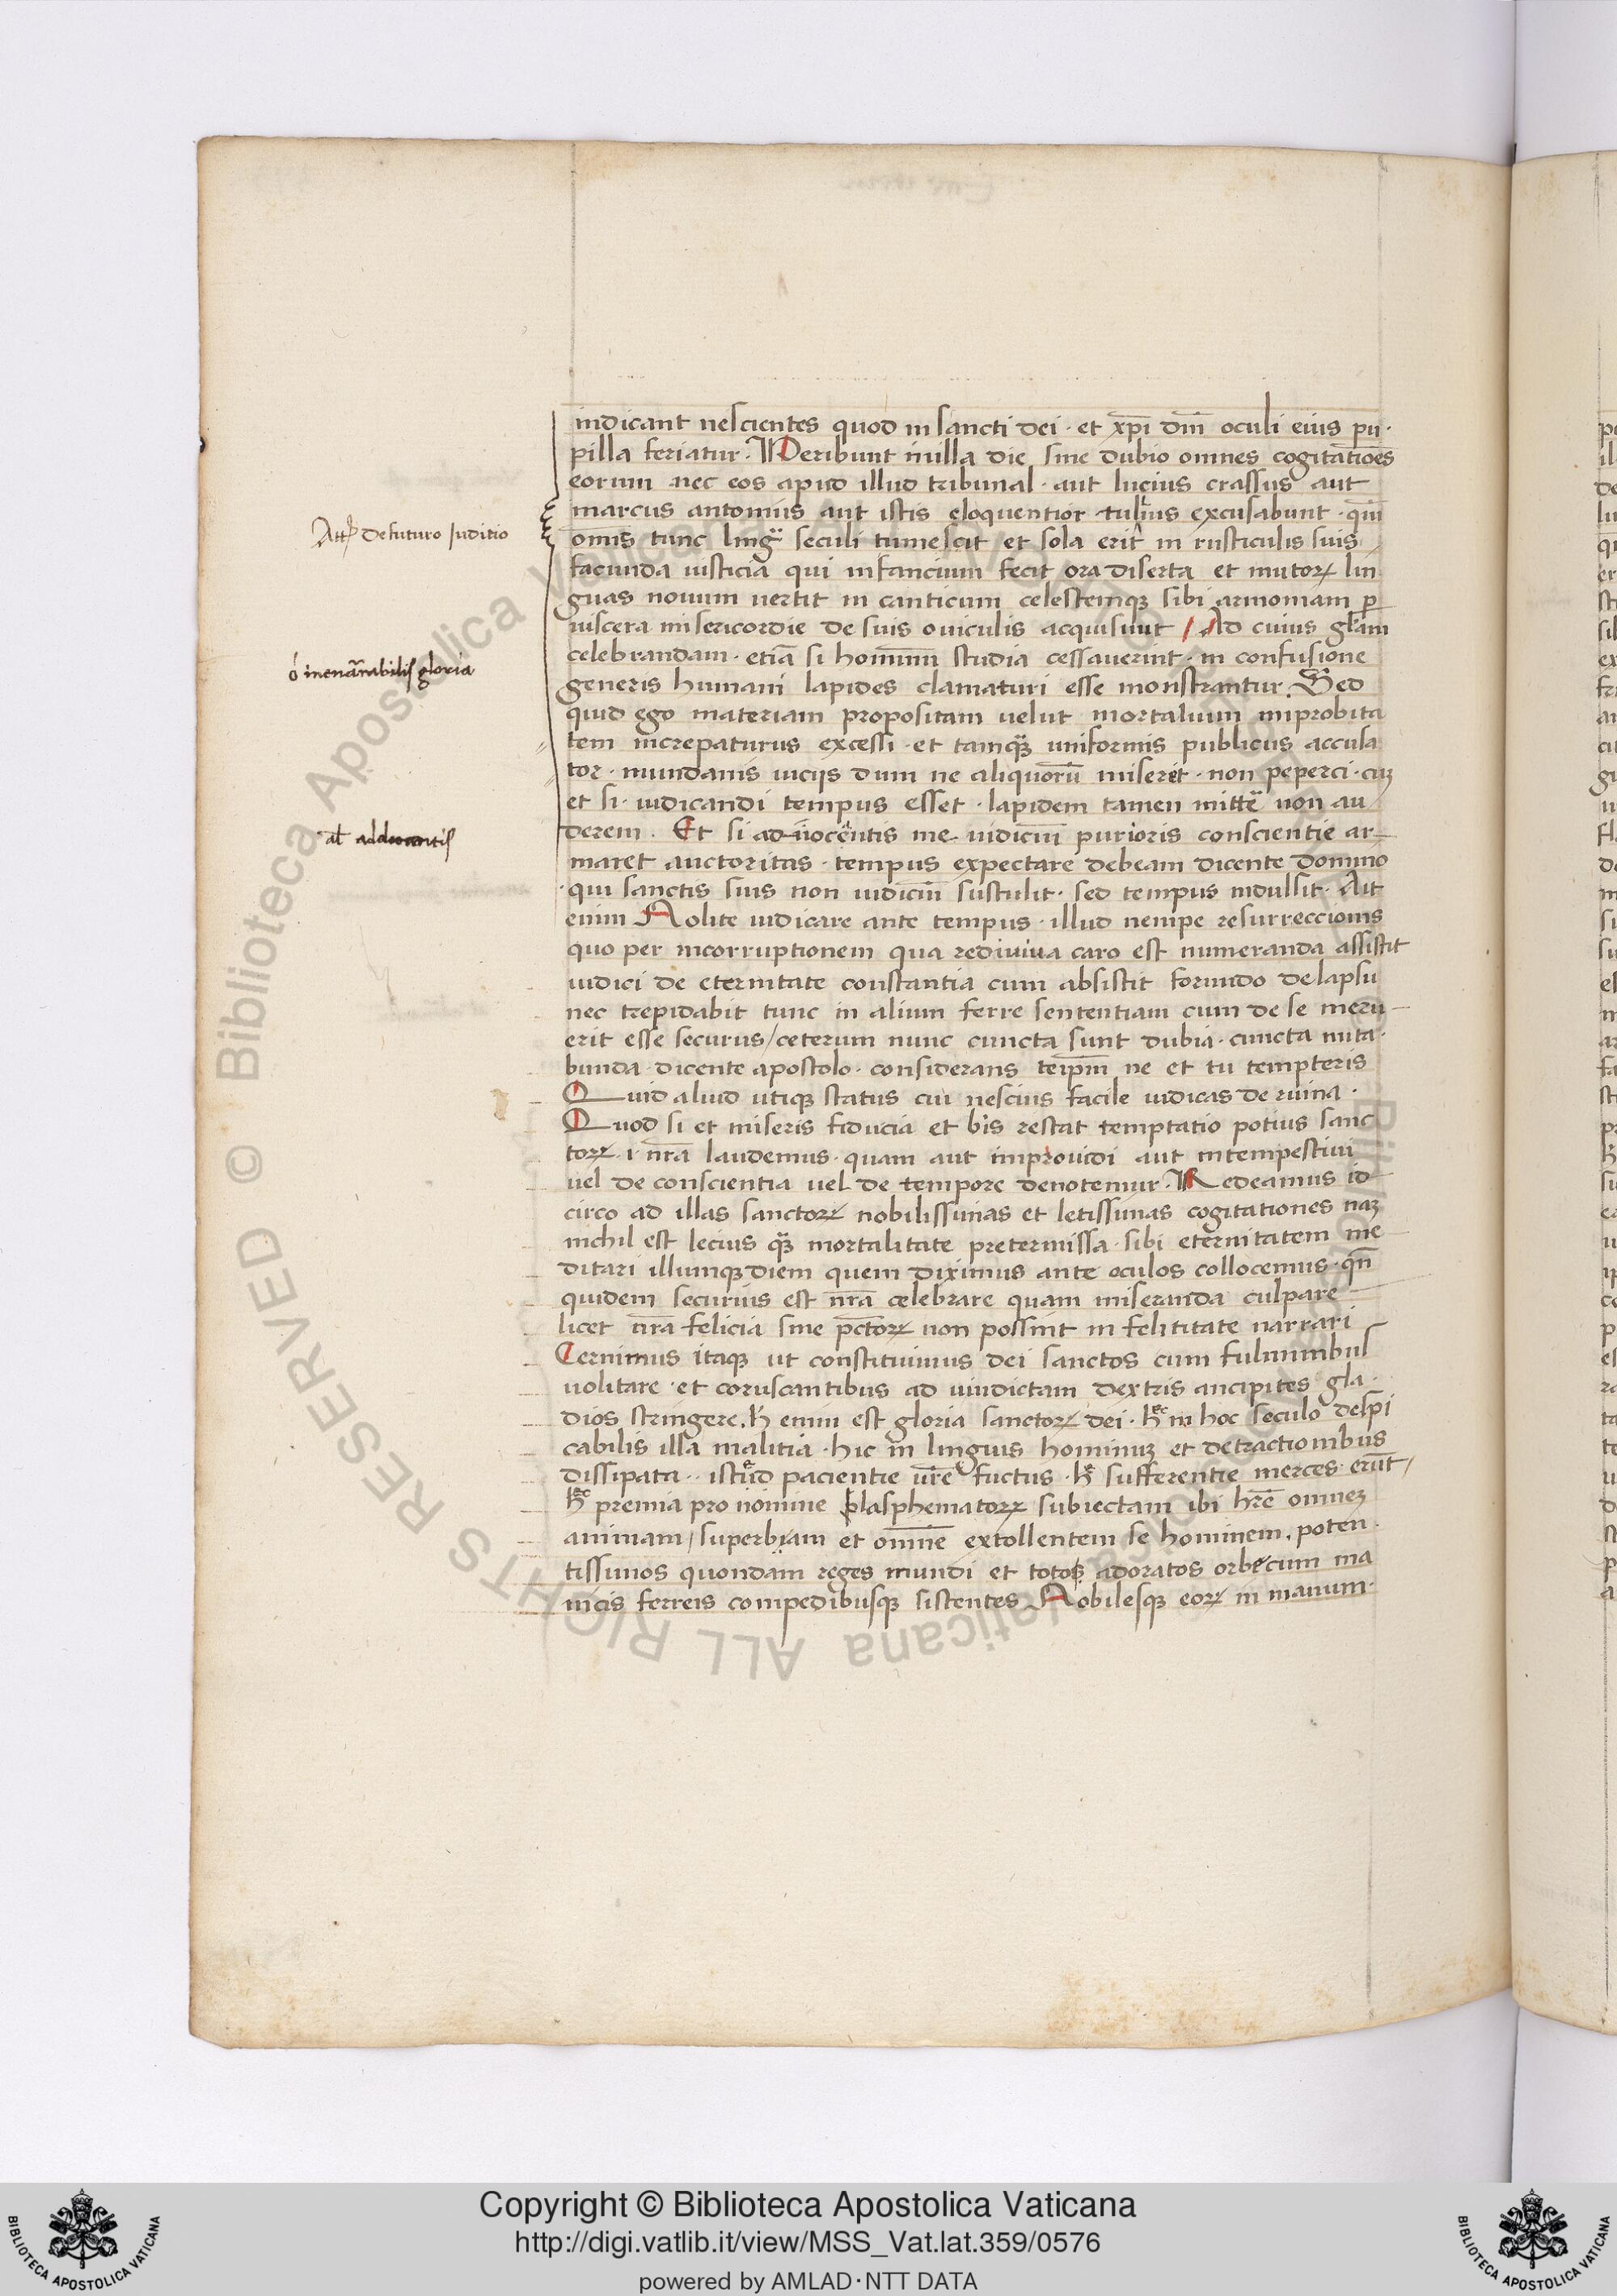 indicant nescientes quod in sancti dei · et xp̄i dn̄i oculi eius pu·
pilla feriatur · Peribunt in illa die sine dubio omnes cogitatiōes
eorum nec eos apud illud tribunal · aut lucius crassus aut
marcus antonius aut istis eloquentior tulius excusabunt · qm̄
Atte de futuro Juditio
omnis tunc lingua seculi tumescit et sola erit in rusticulis suis
facunda iusticia qui infancium fecit ora diserta et mutoꝝ lin
guas nouum uertit in canticum celestemqꝫ sibi armoniam ꝑ
uiscera misericordie de suis ouiculis acquisiuit / Ad cuius glam
o inenarrabilis gloria
celebrandam · etiā si hominum studia cessauerint · in confusione
generis humani lapides clamaturi esse monstrantur. Sed
quid ego materiam propositam uelut mortalium improbita
tem increpaturus excessi · et tamquā uniformis publicus accusa
tor · mundanis uiciis dum ne aliquorū miseret · non peperci · cuꝫ
et si · iudicandi tempus esset · lapidem tamen mitte non au
al aduocantis
derem · Et si ad uocentis me iudicium purioris conscientie ar
maret auctoritas · tempus expectare debeam dicente domino
· qui sanctis suis non iudicium sustulit · sed tempus indulsit · Ait
enim Nolite iudicare ante tempus · illud nempe resurreccionis
quo per incorruptionem qua rediuiua caro est numeranda assistit
iudici de eternitate constantia cum absistit formido de lapsu
nec trepidabit tunc in alium ferre sententiam cum de se meru
erit esse securus / ceterum nunc cuncta sunt dubia · cuncta nuta·
bunda · dicente apostolo · considerans teip̄m ne et tu tempteris
Quid aliud utiqꝫ status cui nescius facile iudicas de ruina ·
Quod si et miseris fiducia et bis restat temptatio potius sanc
toꝝ · i · nr̄a laudemus · quam aut improuidi aut intempestiui
uel de conscientia uel de tempore denotemur · Redeamus id
circo ad illas sanctoꝝ nobilissimas et letissimas cogitationes naꝫ
nichil est lecius quā mortalitate pretermissa · sibi eternitatem me
ditari illumqꝫ diem quem diximus ante oculos collocemus · qn̄
quidem securius est nr̄a celebrare quam miseranda culpare
licet nr̄a felicia sine pc̄toꝝ non possint in felititate narrari
Cernimus itaqꝫ ut constituimus dei sanctos cum fulminibus
uolitare · et coruscantibus ad uindictam dextris ancipites gla·
dios stringere. h̄ enim est gloria sanctoꝝ dei · hec in hoc seculo despi
cabilis illa malitia · hic in linguis hominuꝫ et detractionibus
dissipata · · istud pacientie ur̄e fuctus · hec sufferentie merces erūt /
hec premia pro nomine blasphematoꝝ subiectam ibi hr̄e omneꝫ
animam / superbiam et omnē extollentem se hominem · poten·
tissimos quondam reges mundi et totos adoratos orbe cum ma
nicis ferreis compedibusqꝫ sistentes Nobilesqꝫ eoꝝ in manum·
Copyright © Biblioteca Apostolica Vaticana
http://digi.vatlib.it/view/MSS_Vat.lat.359/0576
powered by AMLAD·NTT DATA
© Biblioteca Apostolica Vaticana ALL RIGHTS RESERVED
BIBLIOTECA APOSTOLICA VATICANA
BIBLIOTECA APOSTOLICA VATICANA